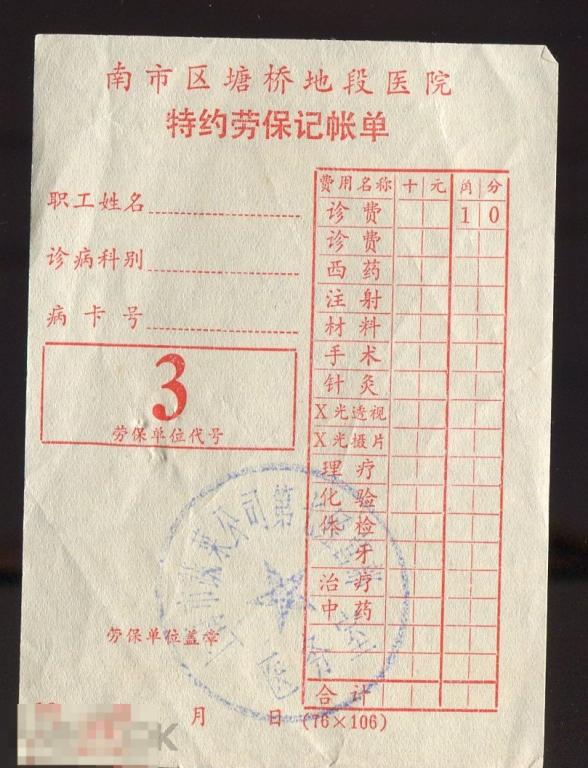 南市区塘桥地段医院
特约劳保记帐单
职工姓名
诊病科别
病卡号
3
劳保单位代号
劳保单位盖章
月 日 (76×106)
费用名称 十 元 角 分
诊费 1 0
诊费
西药
注射
材料
手术
针灸
X光透视
X光摄片
理疗
化验
体检
牙
治疗
中药
合计